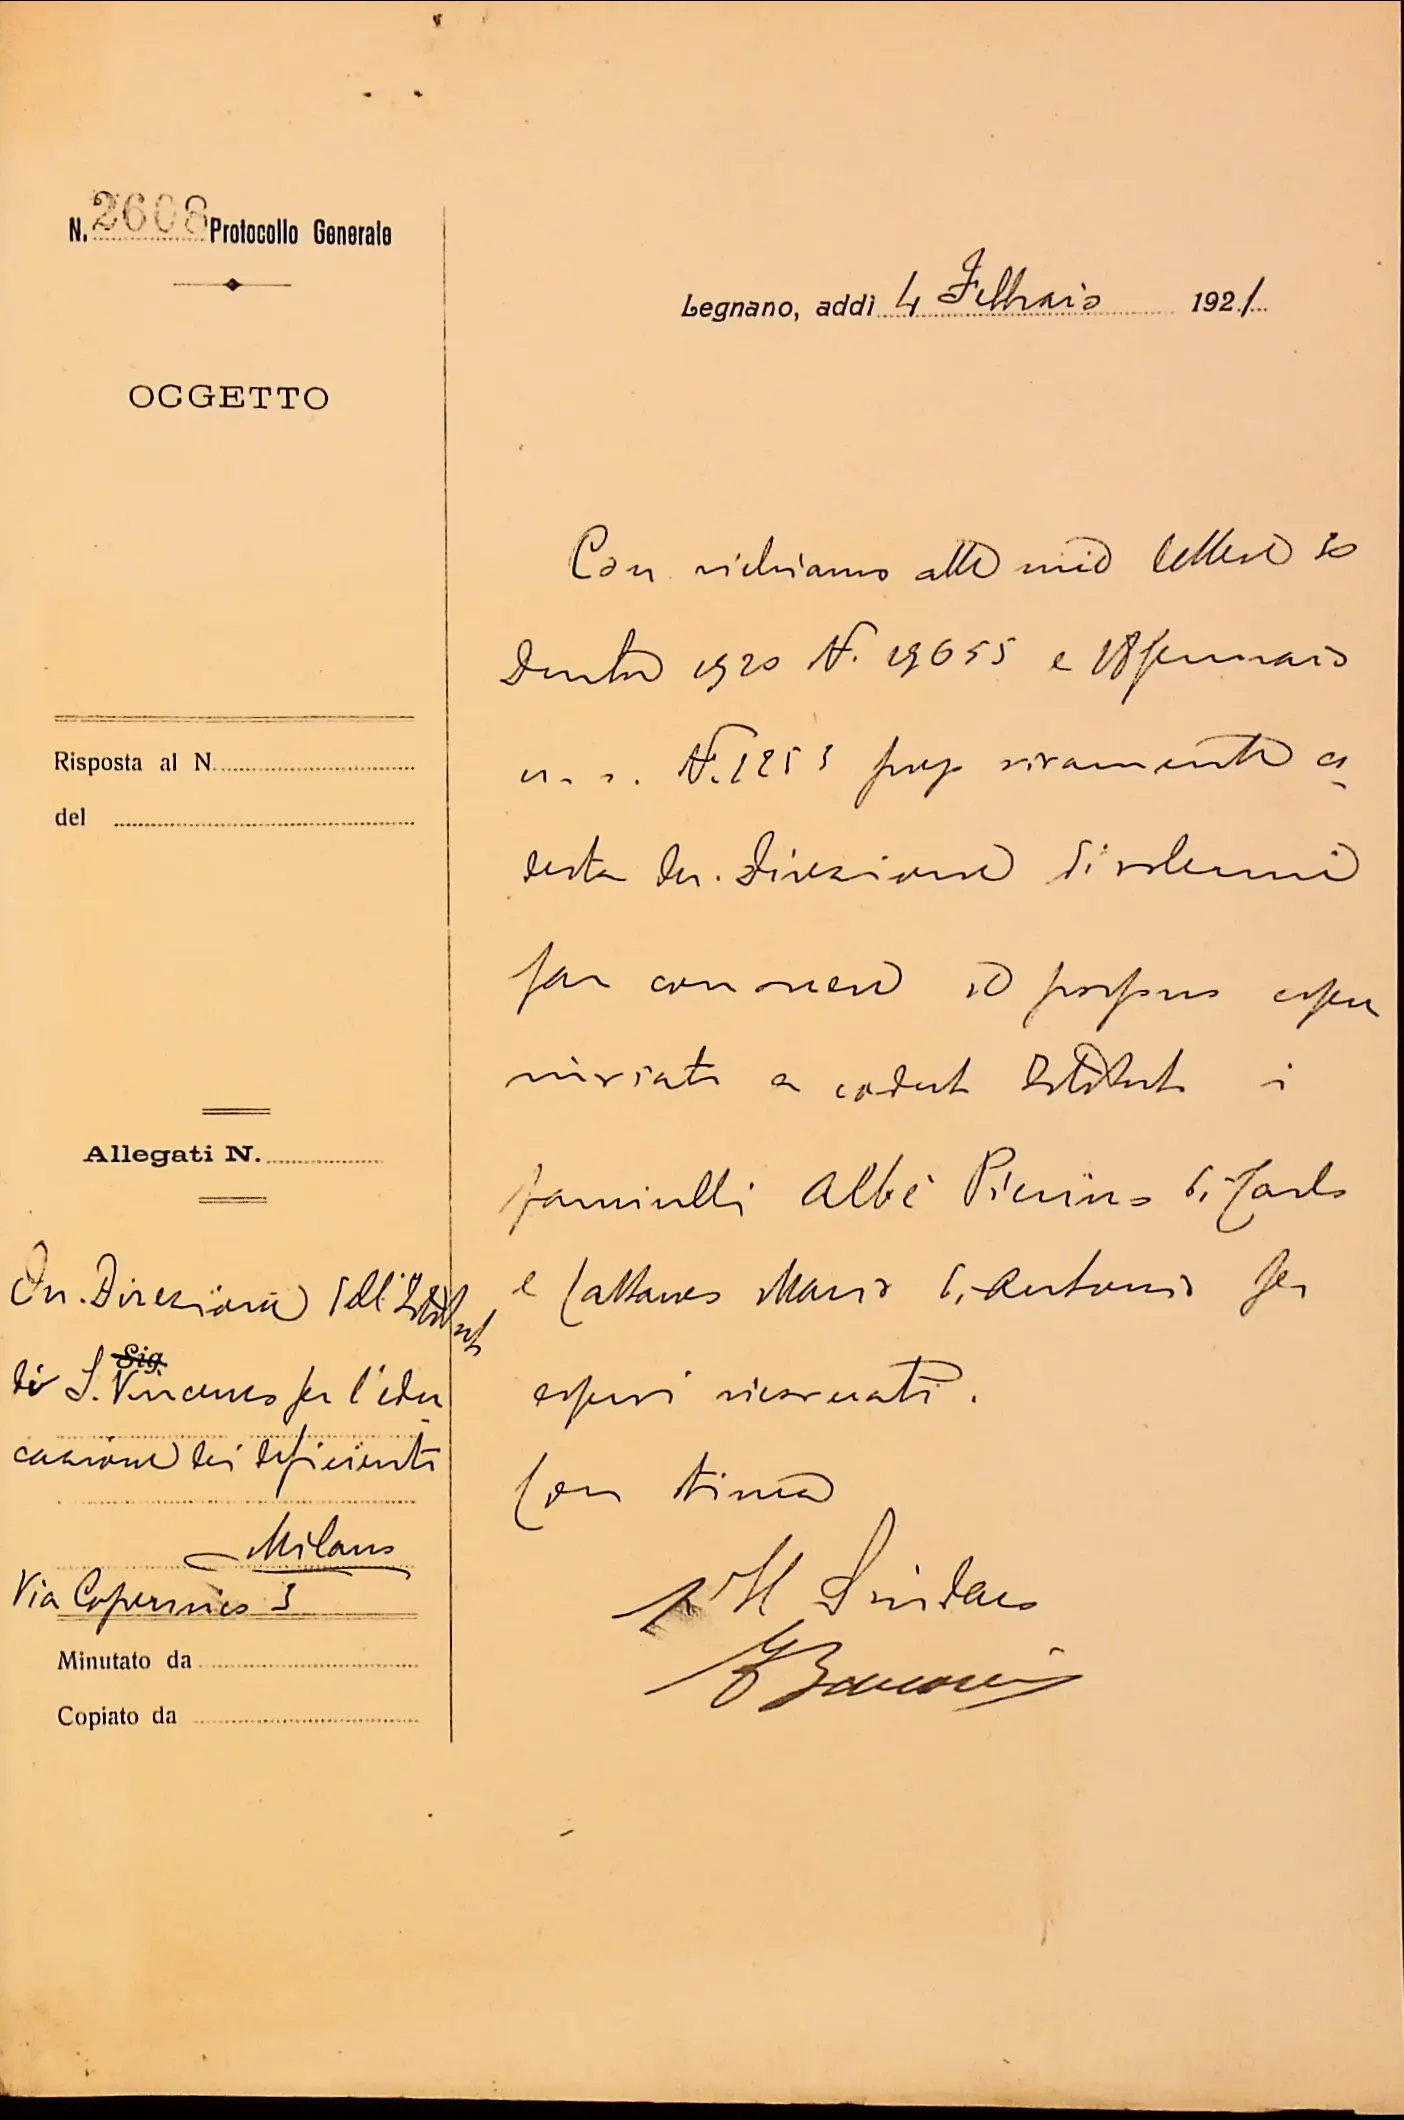 N. 2608 Protocollo Generale
OGGETTO
Risposta al N.
del
Allegati N.
On. Direzione dell'Istituto
Sig.
di S. Vincenzo per l'edu
cazione dei deficienti
Milano
Via Copernico 3
Minutato da
Copiato da
Legnano, addì 4 Febbraio 1921
Con richiamo alle mie lettere 30
1920 N. 19655 e 18 gennaio
N. 1253 prego vivamente co
desta On. Direzione di volermi
far conoscere se possono essere
inviati a codesto Istituto i
fanciulli Albè Pierino di Carlo
e Cattaneo Mario di Antonio per
esservi ricoverati.
Con stima
p. Il Sindaco